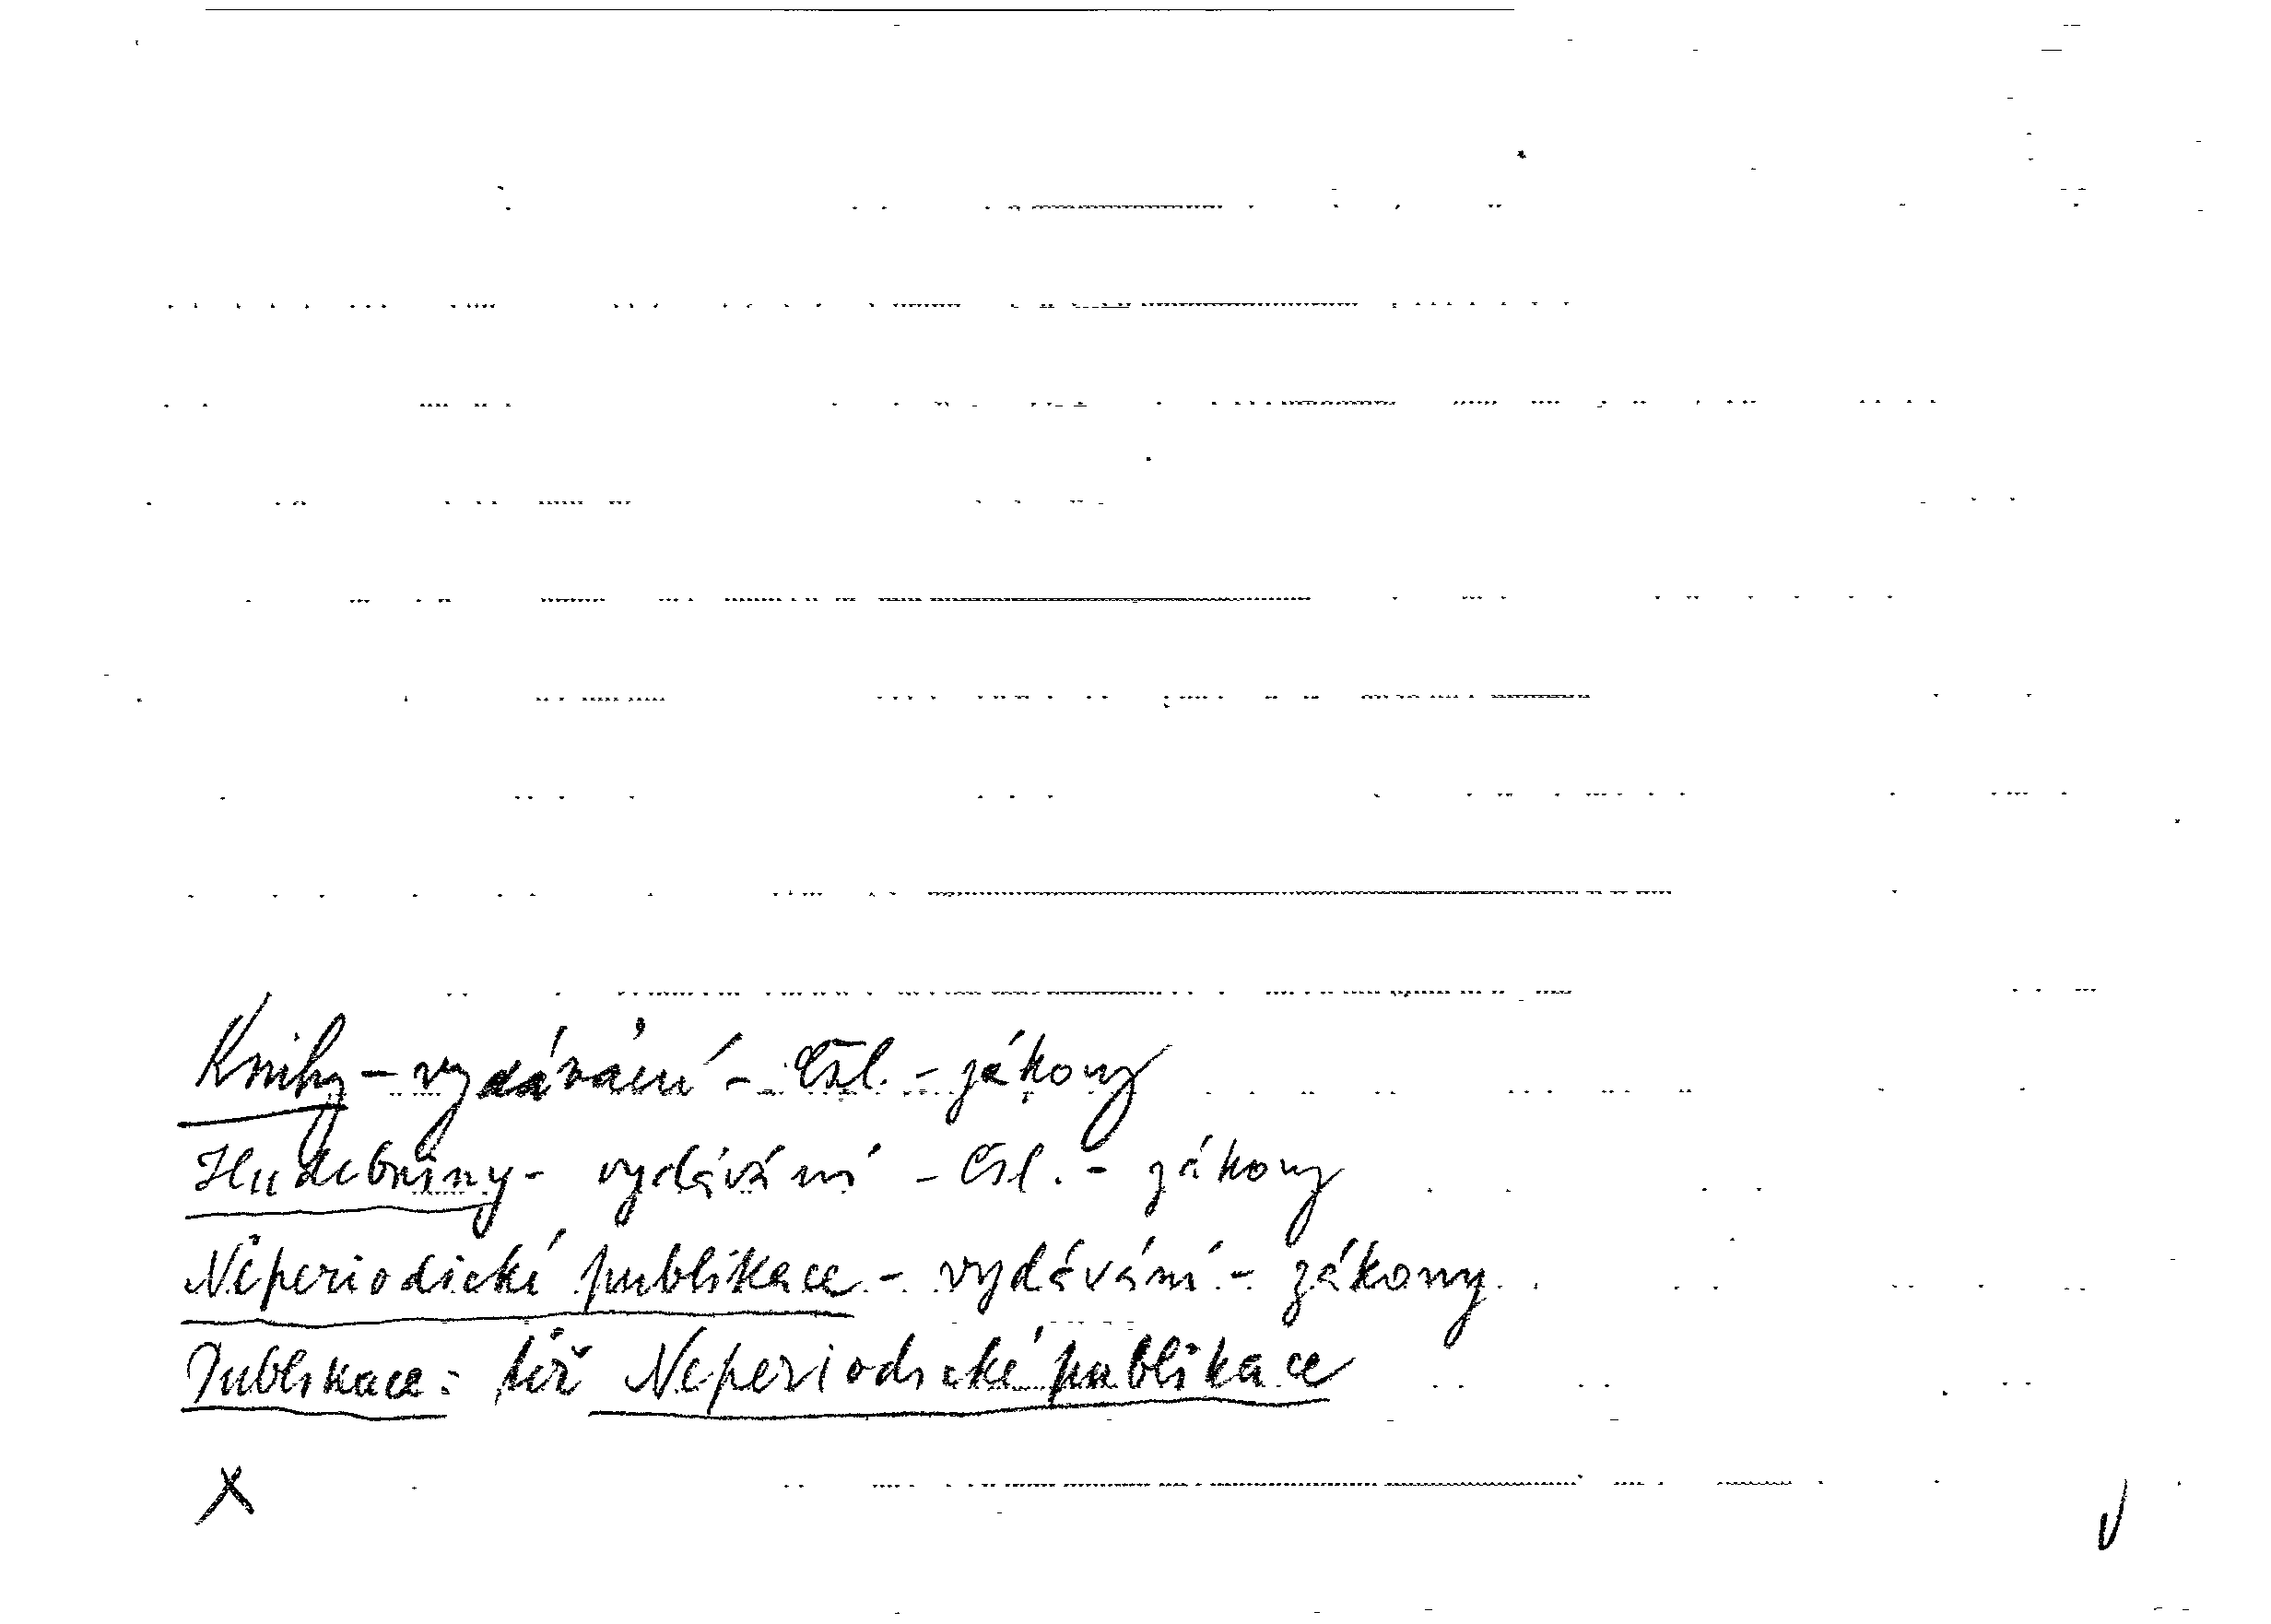 Knihy - vydávání - Čsl. - zákony
Hudebniny - vydávání - Čsl. - zákony
Neperiodické publikace - vydávání - zákony
Publikace: též Neperiodické publikace
X